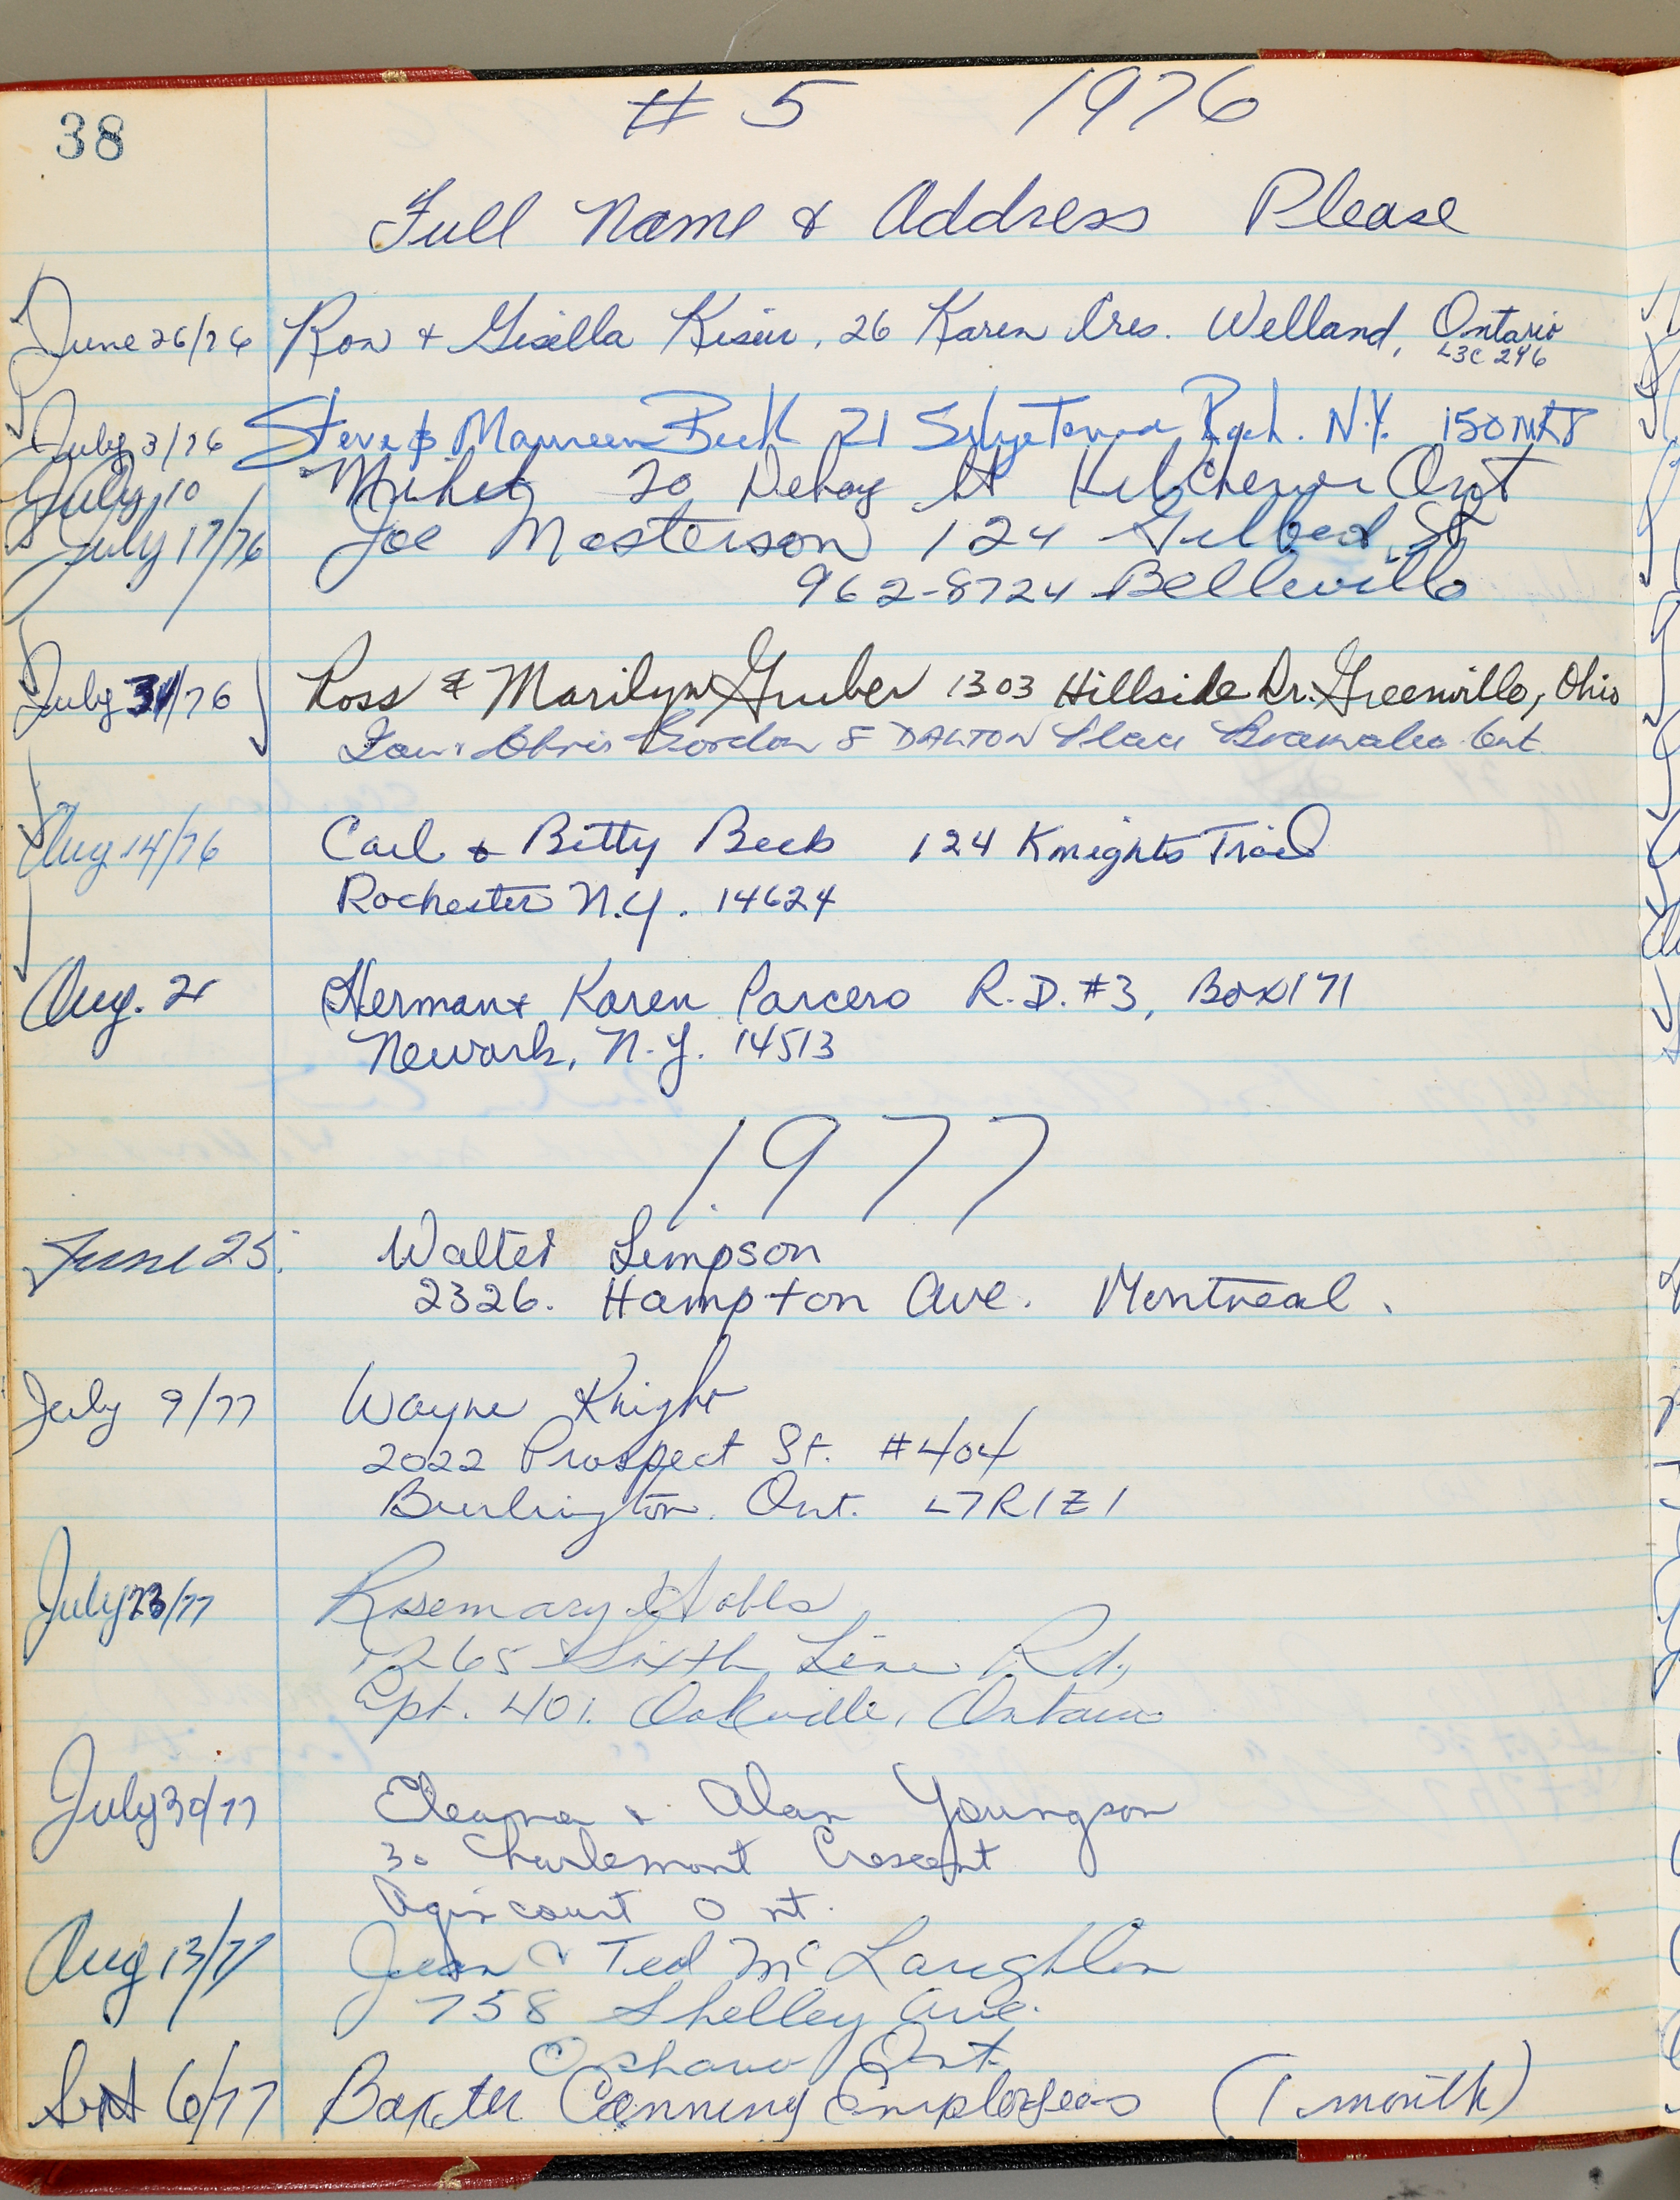 38
# 5 1976
Full Name & Address Please
June 26/76 Ron + Gisella 26 Karen Cres. Welland, Ontario
L3C 2Y6
July 3/76 Steve & Maureen Beck 21 N.Y.
July 10 20 St Ont
July 17/76 Joe Masterson 124 St
962-8724 Belleville
July 31/76 Ross & Marilyn Gruber 1303 Hillside Dr. Greenville, Ohio
Chris Gordon 8 DALTON Place Bramalea Ont
Aug 14/76 Carl & Betty Beck 124 Knights Trail
Rochester N.Y. 14624
Aug. 21 Herman & Karen Parcero R.D. #3, Box 171
Newark, N.Y. 14513
1977
June 25. Walter
2326. Hampton Ave. Montreal.
July 9/77 Wayne Knight
2022 Prospect St. #404
Burlington. Ont. L7R1Z1
July 23/77 Rosemary
1265 Sixth Line Rd.,
Apt. 401. Oakville, Ontario
July 30/77 & Alan Youngson
30 Charlemont Crescent
Agincourt Ont.
Aug 13/77 Jean & Ted McLaughlin
758 Shelley Ave.
Oshawa Ont.
Sept 6/77 Baxter Canning Employees (1 month)